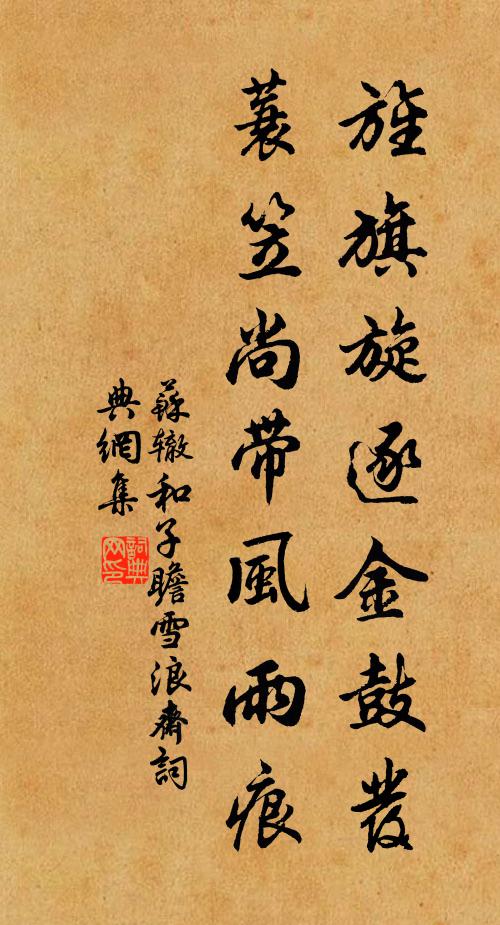 旌旗旋逐金鼓發
蓑笠尚帶風雨痕
蘇辙和子瞻雪浪齋詞
典網集
詞典网印